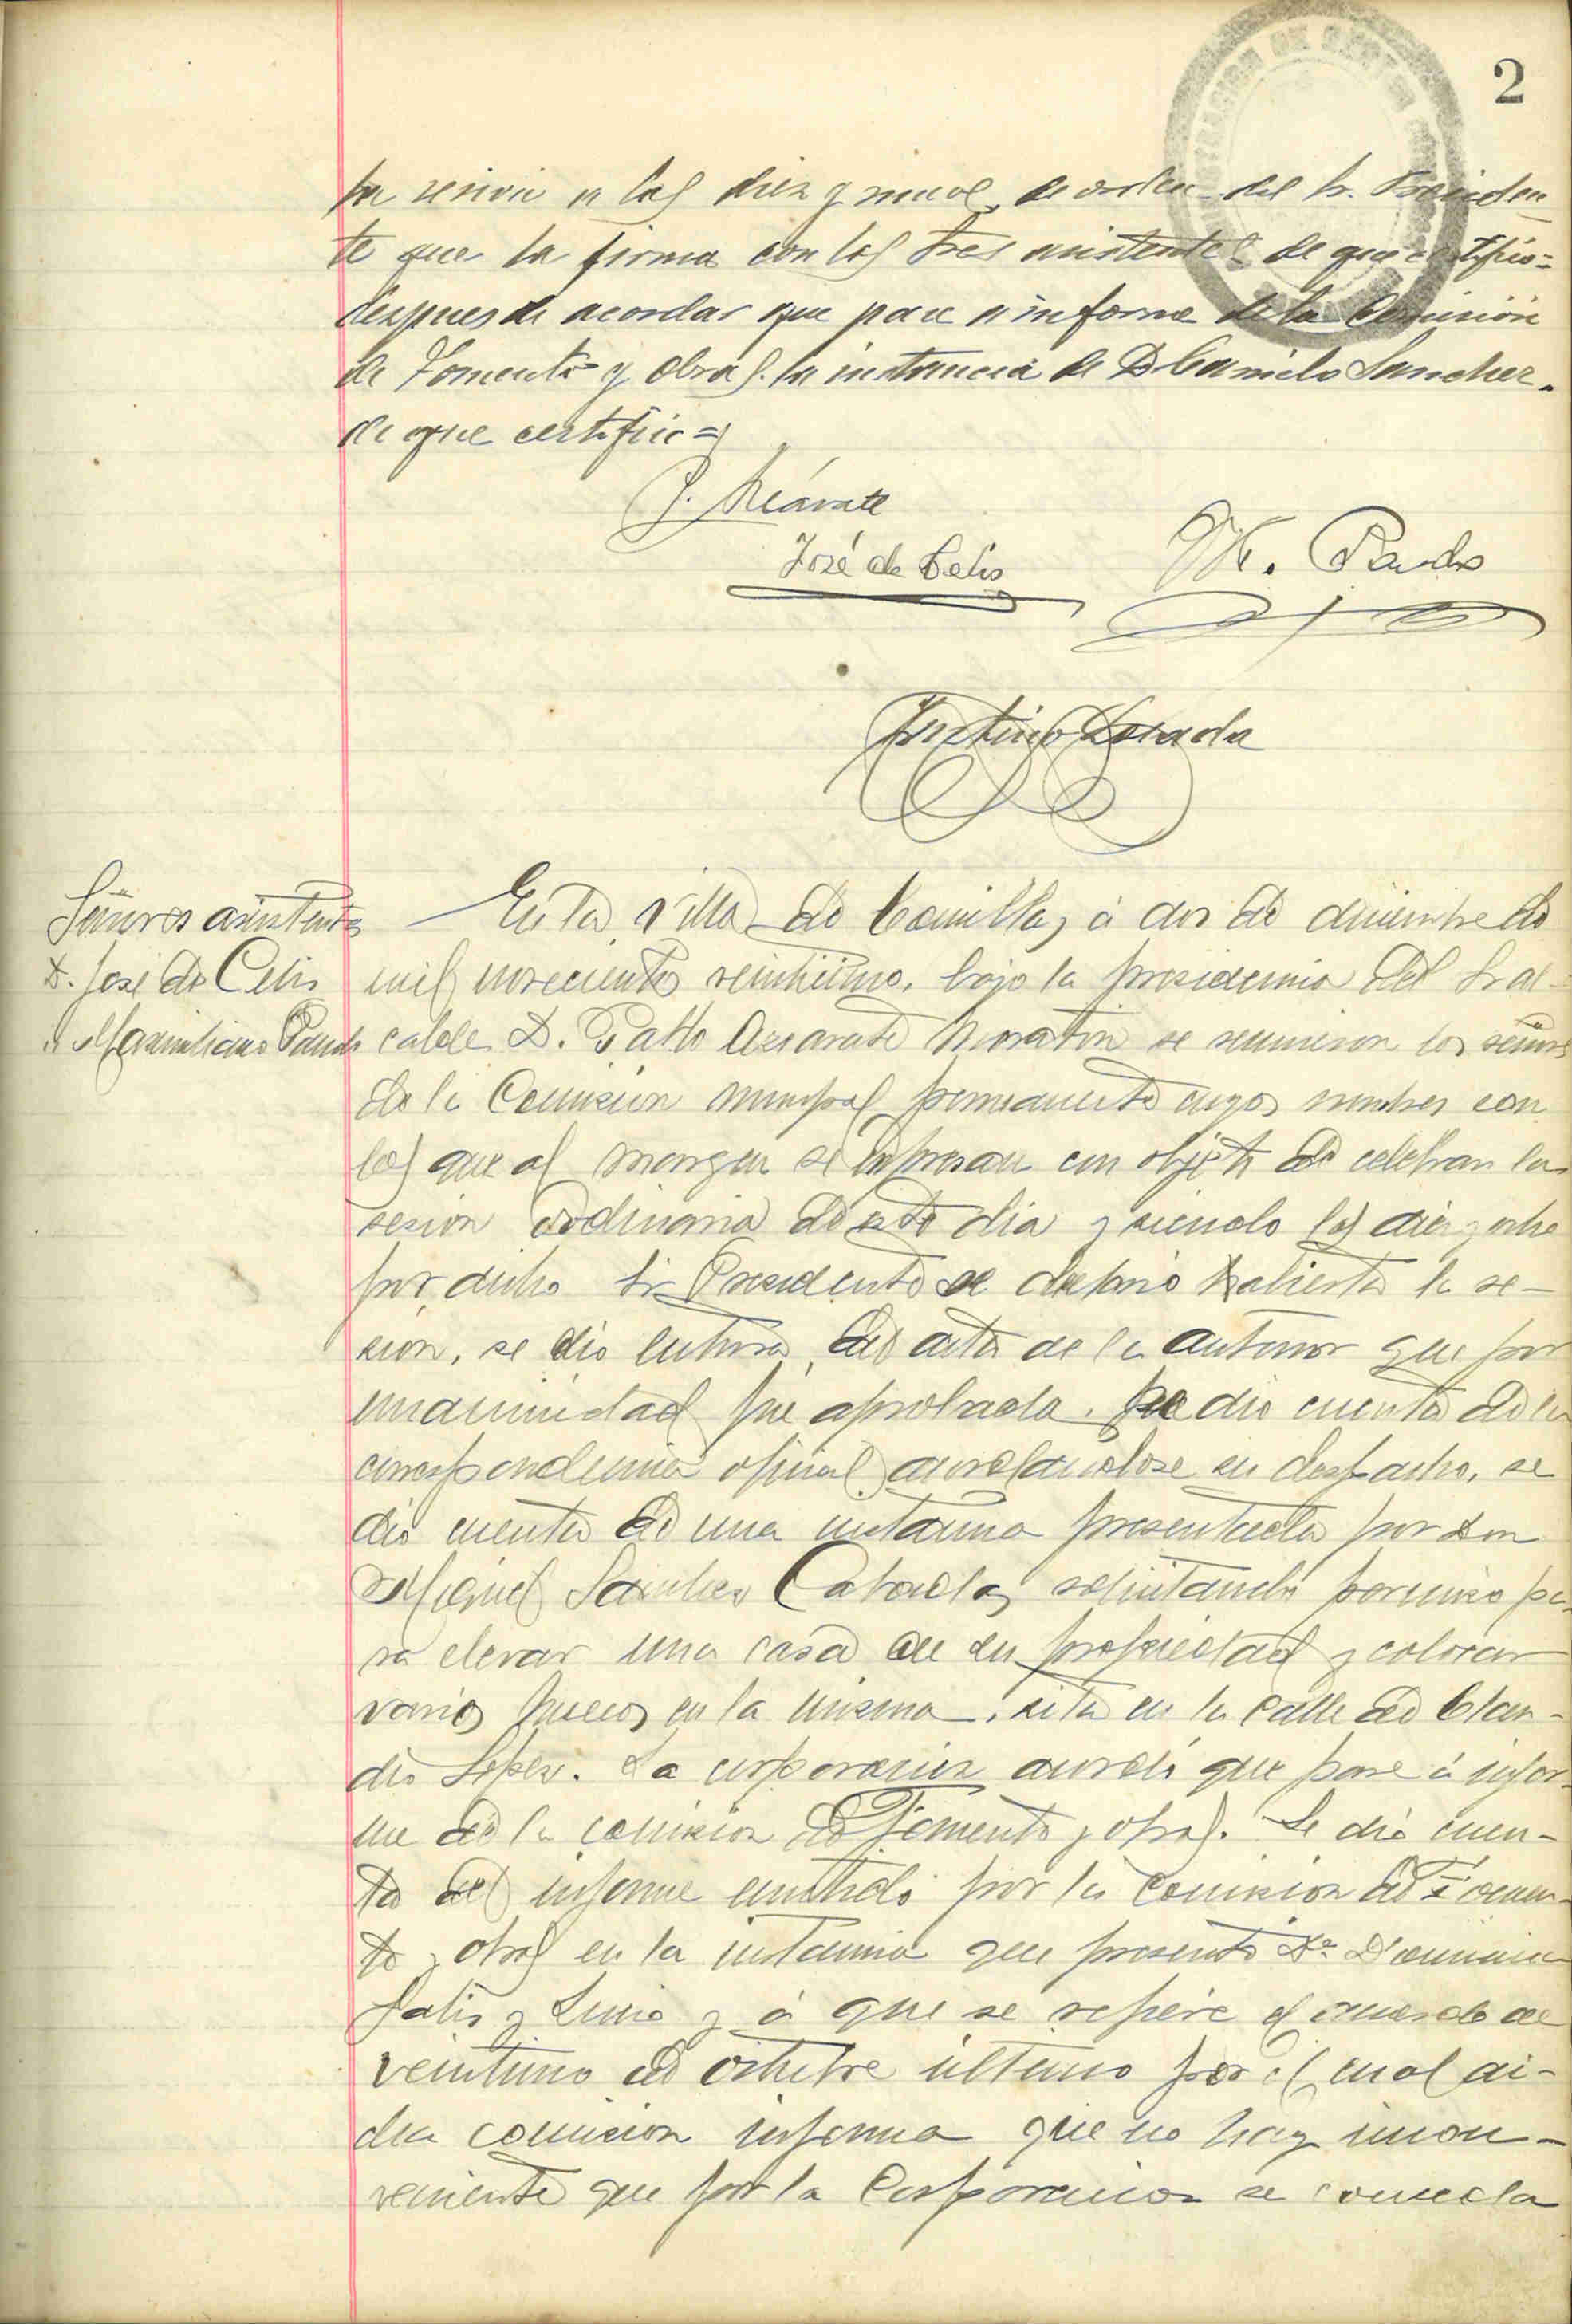 2
la sesión a las diez y nueve, de orden del Sr. Presiden
te que la firma con los tres asistentes de que certifico=
despues de acordar que pase a informe de la Comisión
de Fomento y Obras la instancia de D Camilo Sanchez.
de que certifico=
P. Azcárate
José de Celis
M. Pando
Justino Losada
Señores asistentes
D. José de Celis
" Maximiliano Pando
En la Villa de Comillas, á dos de diciembre de
mil novecientos veintiuno, bajo la presidencia del Sr al-
calde D. Pablo Azcarate Moratin se reunieron los señores
de la Comisión municipal permanente cuyos nombres con
los que al margen se expresan con objeto de celebrar la
sesion ordinaria de este dia y siendo las diez y ocho
por dicho Sr Presidente se declaró abierta la se-
sion, se dio lectura del acta de la anterior que por
unanimidad fué aprobada. Se dio cuenta de la
correspondencia oficial acordandose su despacho, se
dió cuenta de una instancia presentada por Don
Miguel Sanchez solicitando permiso pa-
ra elevar una casa de su propiedad y colocar
varios huecos en la misma, sita en la calle de Clau-
dio Lopez. La corporacion acordó que pase á infor-
me de la comision de Fomento y obras. Se dió cuen-
ta del informe emitido por la Comision de Fomen-
to y obras en la instancia que presentó Dª
y á que se refiere el acuerdo de
veintuno de octubre ultimo por el cual di-
cha comision informa que no hay incon-
veniente que por la Corporacion se conceda